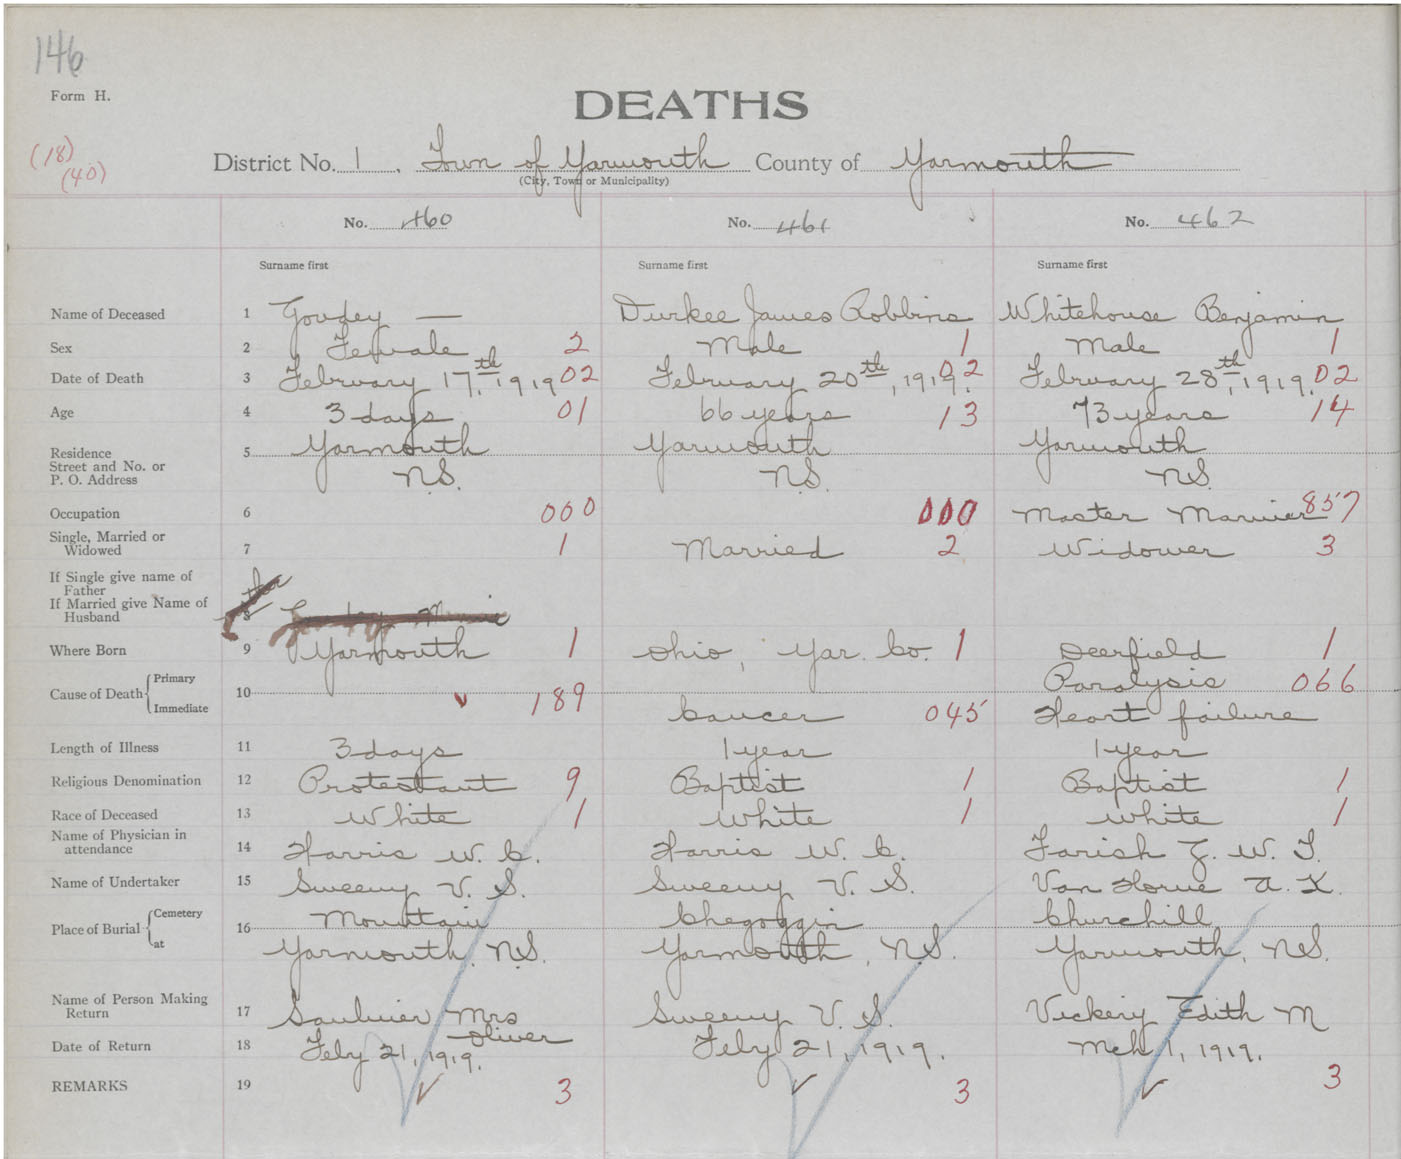 146
Form H.
DEATHS
(18)
(40)
District No. 1. Town of Yarmouth County of Yarmouth
(City, Town or Municipality)
No. 460 No. 461 No. 462
Surname first Surname first Surname first
Name of Deceased 1 Goudey — Durkee James Robbins Whitehouse Benjamin
Sex 2 Female 2 Male 1 Male 1
Date of Death 3 February 17th, 1919. 02 February 20th, 1919. 02 February 28th, 1919. 02
Age 4 3 days 01 66 years 13 73 years 14
Residence Street and No. or P. O. Address 5 Yarmouth Yarmouth Yarmouth
N.S. N.S. N.S.
Occupation 6 000 000 Master Mariner 857
Single, Married or Widowed 7 1 Married 2 Widower 3
If Single give name of Father
If Married give Name of Husband 8
Where Born 9 Yarmouth 1 Ohio, Yar. Co. 1 Deerfield 1
Cause of Death Primary 10 189 Paralysis 066
Immediate Cancer 045 Heart failure
Length of Illness 11 3 days 1 year 1 year
Religious Denomination 12 Protestant 9 Baptist 1 Baptist 1
Race of Deceased 13 White 1 White 1 White 1
Name of Physician in attendance 14 Harris W. C. Harris W. C. Farish G. W. T.
Name of Undertaker 15 Sweeny V. S. Sweeny V. S. Van Horne A. K.
Place of Burial Cemetery 16 Mountain Chegoggin Churchill
at Yarmouth, N.S. Yarmouth, N.S. Yarmouth, N.S.
Name of Person Making Return 17 Saulnier Mrs Oliver Sweeny V. S. Vickery Edith M
Date of Return 18 Feby 21, 1919. Feby 21, 1919. Mch 1, 1919.
REMARKS 19 3 3 3